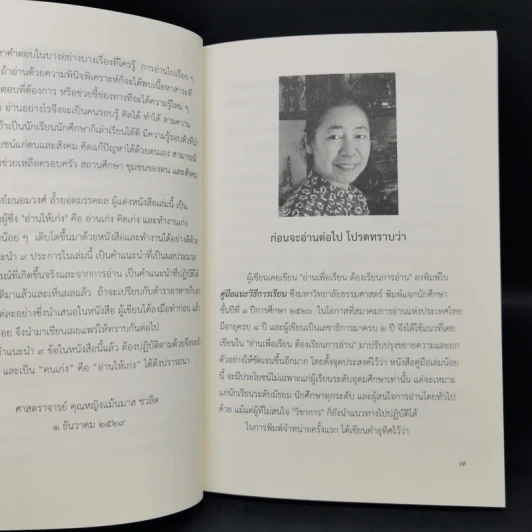 หาคำตอบในบางอย่างบางเรื่องที่ใคร่รู้ การอ่านไปเรื่อย ๆ
ถ้าอ่านด้วยความพินิจพิเคราะห์ก็จะได้พบเนื้อหาสาระที่
ตอบที่ต้องการ หรือช่วยชี้ช่องทางที่จะได้ความรู้ใหม่ ๆ
อ่านอย่างไรจึงจะเป็นคนรอบรู้ คิดได้ ทำได้ ตามความ
ถ้าเป็นนักเรียนนักศึกษาก็เล่าเรียนได้ดี มีความรู้รอบตัวที่นำ
ยชน์แก่ตนและสังคม คิดแก้ปัญหาได้ด้วยตนเอง สามารถ
ช่วยเหลือครอบครัว สถานศึกษา ชุมชนของตน และสังคม
ย์ถนอมวงศ์ ล้ำยอดมรรคผล ผู้แต่งหนังสือเล่มนี้ เป็น
ผู้ซึ่ง "อ่านให้เก่ง" คือ อ่านเก่ง คิดเก่ง และทำงานเก่ง
น้อย ๆ เติบโตขึ้นมาด้วยหนังสือและทำงานได้อย่างดีด้วย
ะนำ ๙ ประการในเล่มนี้ เป็นคำแนะนำที่เป็นผลประมวล
รณ์ที่เกิดขึ้นจริงและจากการอ่าน เป็นคำแนะนำที่ปฏิบัติได้
ติมาแล้วและเห็นผลแล้ว ถ้าจะเปรียบกับตำราอาหารก็เป็น
ต่ละอย่างซึ่งนำเสนอในหนังสือ ผู้เขียนได้ลงมือทำก่อน แล้ว
อย จึงนำมาเขียนเผยแพร่ให้ทราบกันต่อไป
คำแนะนำ ๙ ข้อในหนังสือนี้แล้ว ต้องปฏิบัติตามด้วยจึงจะ
และเป็น "คนเก่ง" คือ "อ่านให้เก่ง" ได้ดังปรารถนา
ศาสตราจารย์ คุณหญิงแม้นมาส ชวลิต
๑ ธันวาคม ๒๕๒๙
ก่อนจะอ่านต่อไป โปรดทราบว่า
ผู้เขียนเคยเขียน "อ่านเพื่อเรียน ต้องเรียนการอ่าน" ลงพิมพ์ใน
คู่มือแนะวิธีการเรียน ซึ่งมหาวิทยาลัยธรรมศาสตร์ พิมพ์แจกนักศึกษา
ชั้นปีที่ ๑ ปีการศึกษา ๒๕๒๖ ในโอกาสที่สมาคมการอ่านแห่งประเทศไทย
มีอายุครบ ๔ ปี และผู้เขียนเป็นเลขาธิการมาครบ ๒ ปี จึงได้ใช้แนวที่เคย
เขียนใน "อ่านเพื่อเรียน ต้องเรียนการอ่าน" มาปรับปรุงขยายความและยก
ตัวอย่างให้ชัดเจนขึ้นอีกมาก โดยตั้งจุดประสงค์ไว้ว่า หนังสือคู่มือเล่มน้อย
นี้ จะมีประโยชน์ไม่เฉพาะแก่ผู้เรียนระดับอุดมศึกษาเท่านั้น แต่จะเหมาะ
แก่นักเรียนระดับมัธยม นักศึกษาทุกระดับ และผู้สนใจการอ่านโดยทั่วไป
ด้วย แม้แต่ผู้ที่ไม่สนใจ "วิชาการ" ก็ยังนำแนวทางไปปฏิบัติได้
ในการพิมพ์จำหน่ายครั้งแรก ได้เขียนคำอุทิศไว้ว่า
๗